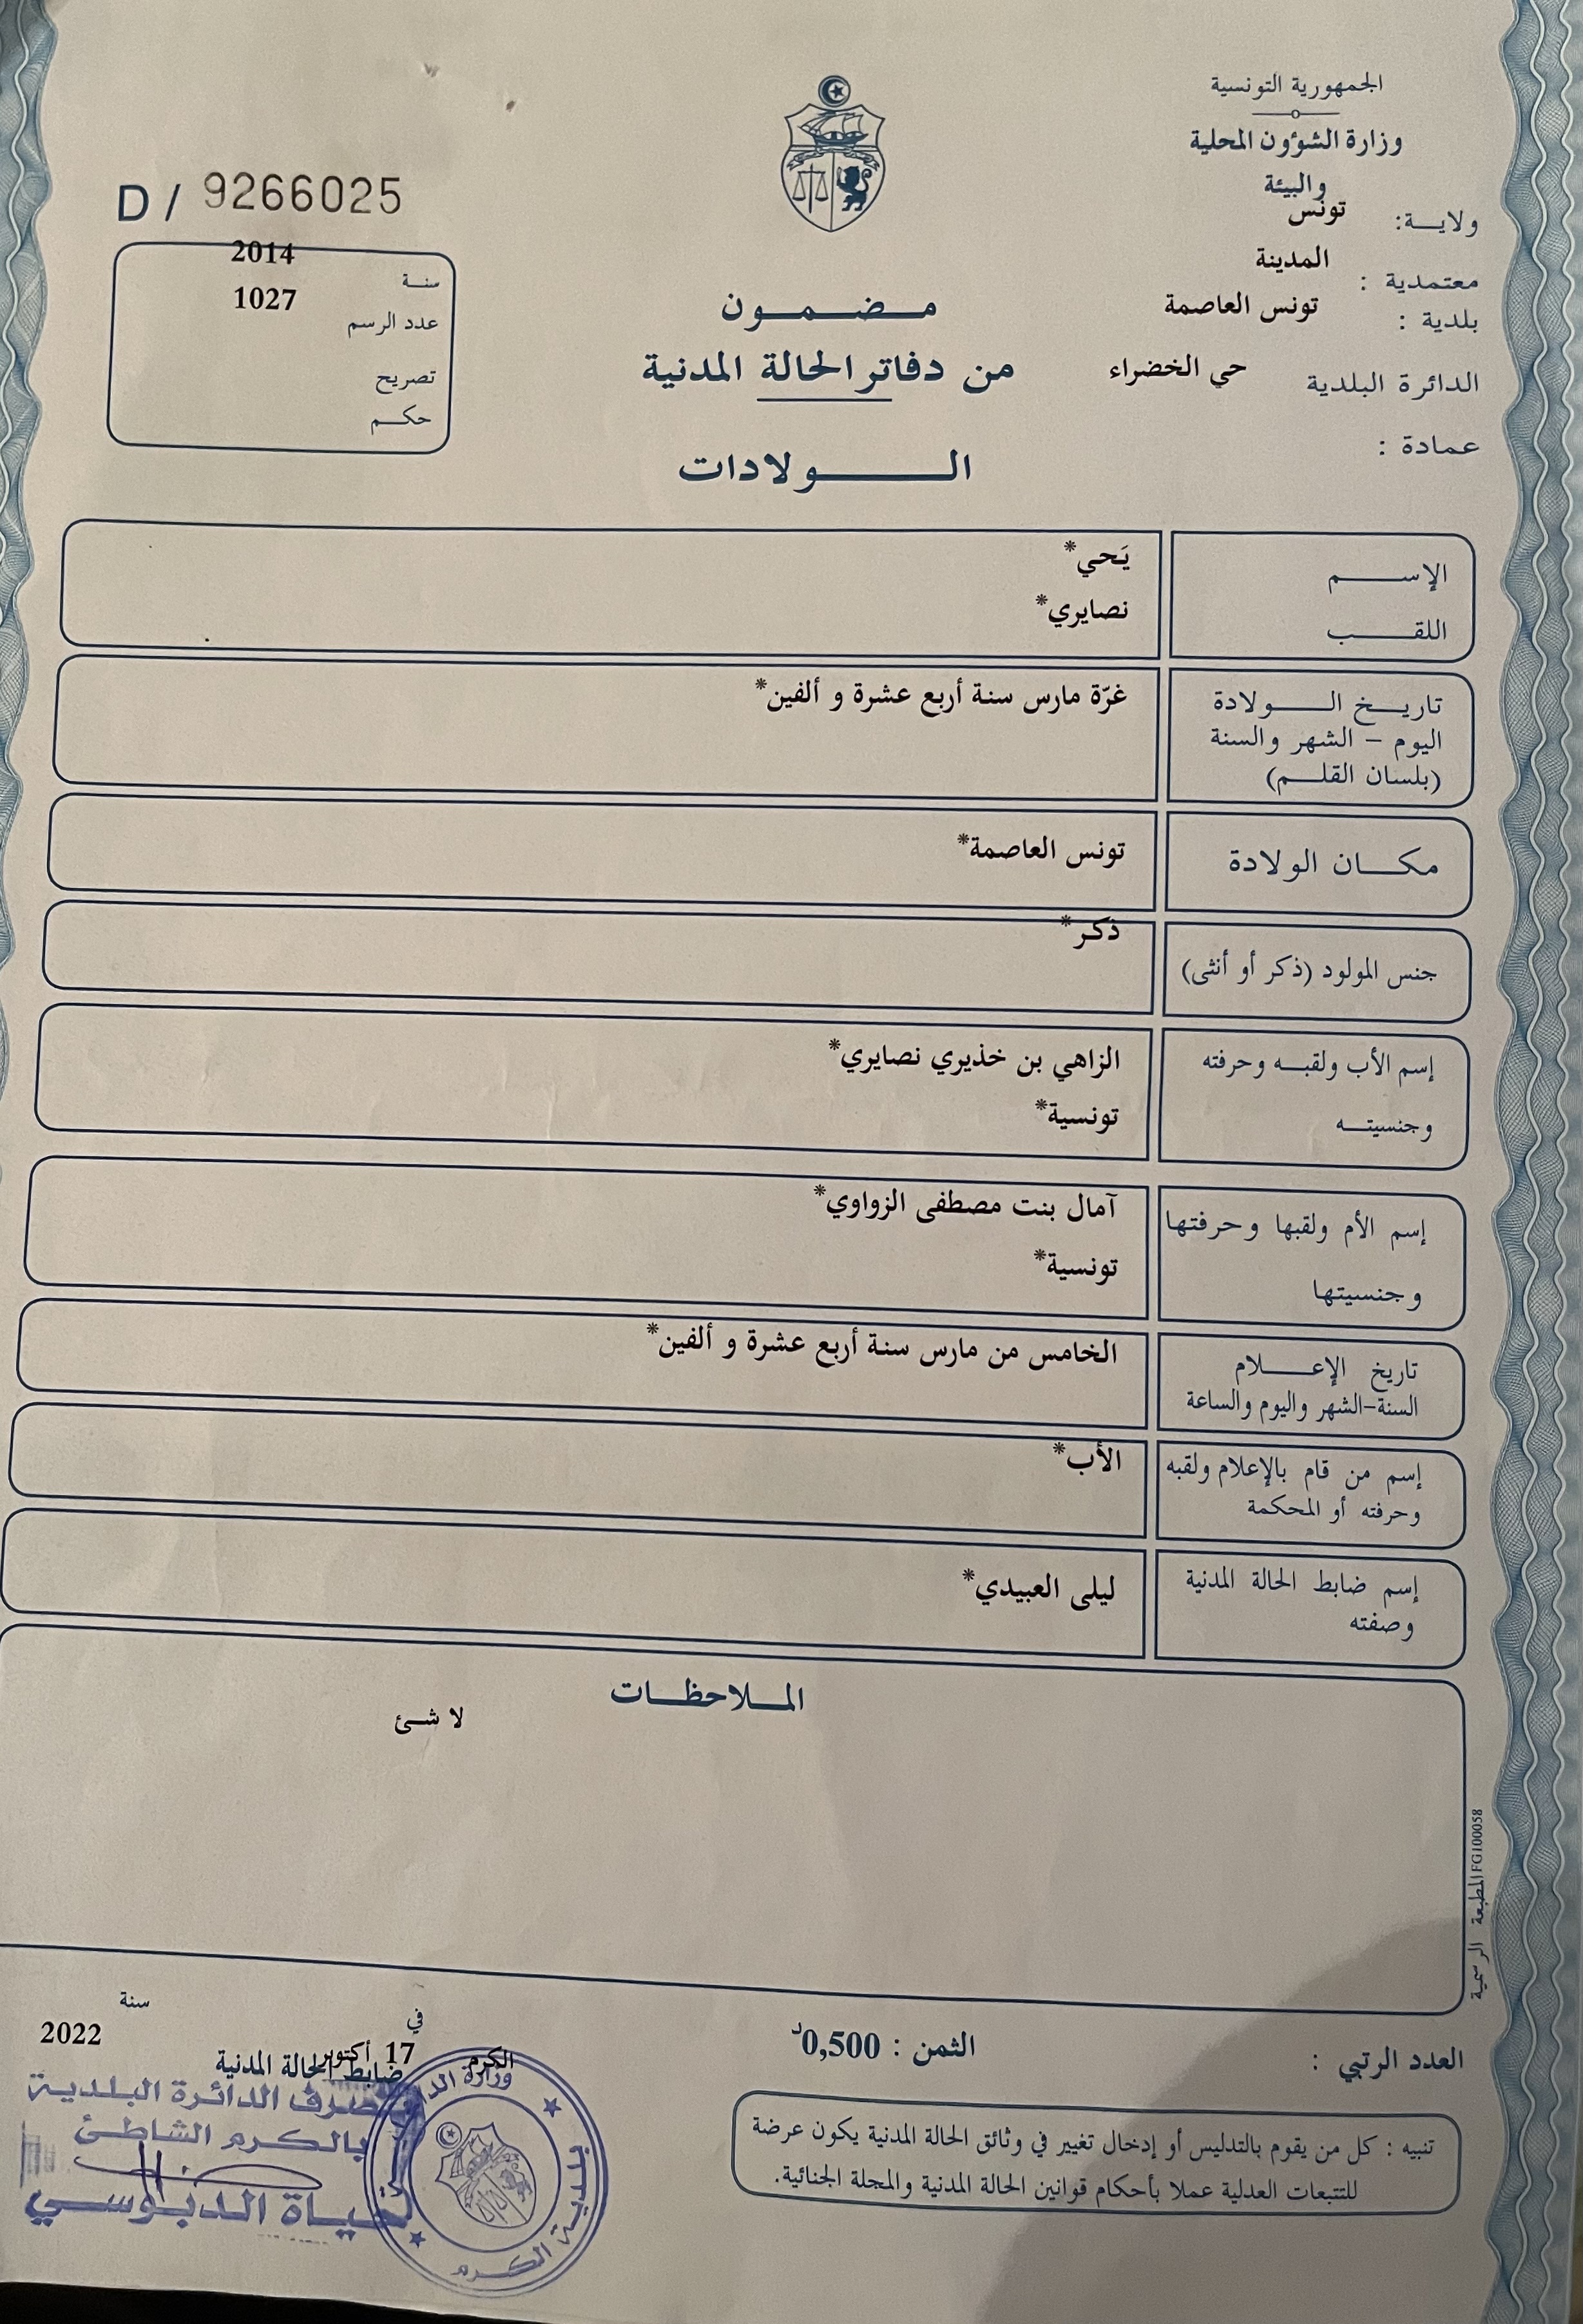 الجمهورية التونسية
وزارة الشؤون المحلية
والبيئة
ولايـــة: تونس
معتمدية : المدينة
بلدية : تونس العاصمة
الدائرة البلدية حي الخضراء
عمادة :
D / 9266025
سنــة 2014
عدد الرسم 1027
تصريح
حكـــم
مـــضـــمـــون
من دفاتر الحالة المدنية
الـــــولادات
الإســـــم يَحي*
اللقـــــب نصايري*
تاريـــخ الـــــولادة غرّة مارس سنة أربع عشرة و ألفين*
اليوم – الشهر والسنة
(بلسان القلـــم)
مكـــان الولادة تونس العاصمة*
جنس المولود (ذكر أو أنثى) ذكر*
إسم الأب ولقبــه وحرفته الزاهي بن خذيري نصايري*
وجنسيتــه تونسية*
إسم الأم ولقبها وحرفتها آمال بنت مصطفى الزواوي*
وجنسيتها تونسية*
تاريخ الإعـــــلام الخامس من مارس سنة أربع عشرة و ألفين*
السنة-الشهر واليوم والساعة
إسم من قام بالإعلام ولقبه الأب*
وحرفته أو المحكمة
إسم ضابط الحالة المدنية ليلى العبيدي*
وصفته
المـــلاحظـــات
لا شئ
المطبعة الرسمية FG100058
العدد الرتبي :
الثمن : 0,500د
الكرم في 17 أكتوبر سنة 2022
ضابط الحالة المدنية
الدائرة البلدية
بالكرم الشاطئ
حياة الدبوسي
بلدية الكرم
تنبيه : كل من يقوم بالتدليس أو إدخال تغيير في وثائق الحالة المدنية يكون عرضة
للتتبعات العدلية عملا بأحكام قوانين الحالة المدنية والمجلة الجنائية.